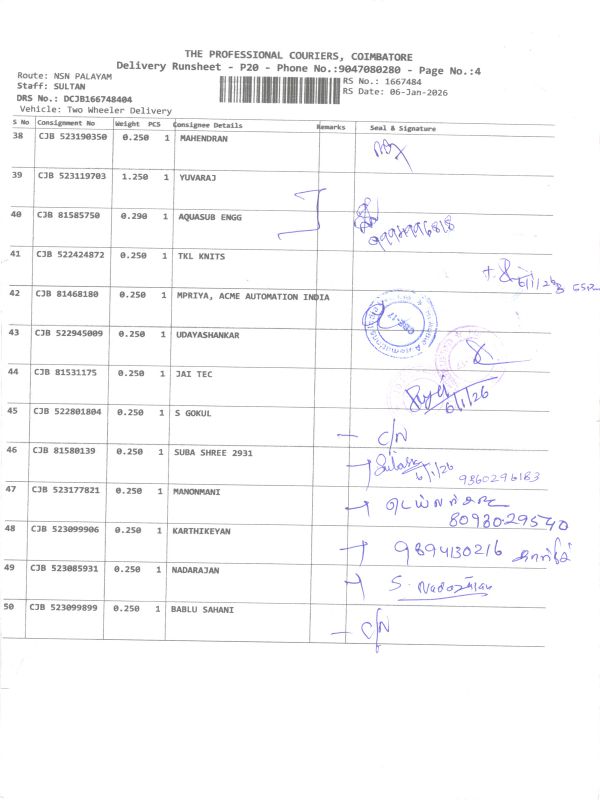 THE PROFESSIONAL COURIERS, COIMBATORE
Delivery Runsheet - P20 - Phone No.:9047080280 - Page No.:4
Route: NSN PALAYAM
Staff: SULTAN
DRS No.: DCJB166748404
Vehicle: Two Wheeler Delivery
RS No.: 1667484
RS Date: 06-Jan-2026
S No Consignment No Weight PCS Consignee Details Remarks Seal & Signature
38 CJB 523190350 0.250 1 MAHENDRAN
39 CJB 523119703 1.250 1 YUVARAJ
40 CJB 81585750 0.290 1 AQUASUB ENGG
41 CJB 522424872 0.250 1 TKL KNITS 6/1/26
42 CJB 81468180 0.250 1 MPRIYA, ACME AUTOMATION INDIA
43 CJB 522945009 0.250 1 UDAYASHANKAR
44 CJB 81531175 0.250 1 JAI TEC 6/1/26
45 CJB 522801804 0.250 1 S GOKUL C/N
46 CJB 81580139 0.250 1 SUBA SHREE 2931 6/1/26 9360296183
47 CJB 523177821 0.250 1 MANONMANI 8098029540
48 CJB 523099906 0.250 1 KARTHIKEYAN 9894130216
49 CJB 523085931 0.250 1 NADARAJAN S. Nadarajan
50 CJB 523099899 0.250 1 BABLU SAHANI C/N